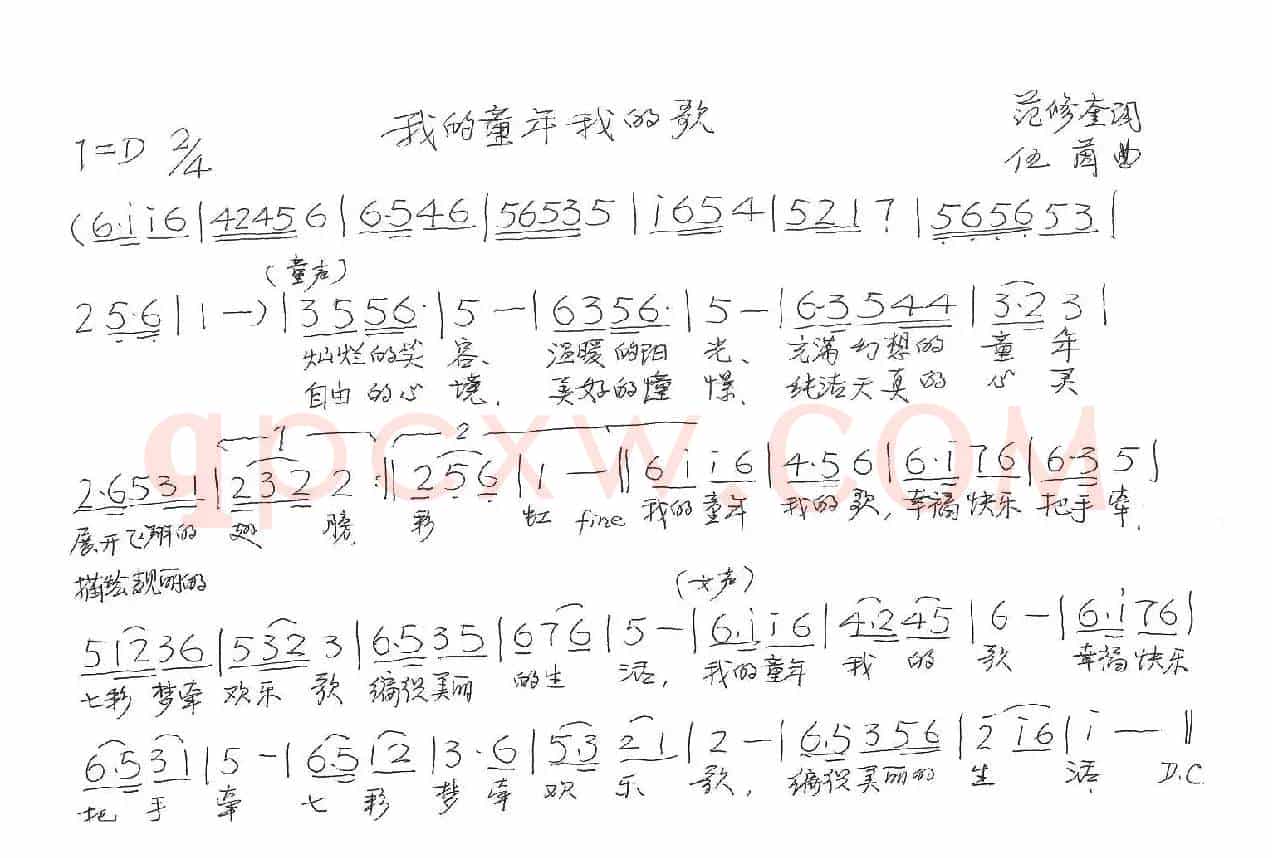 我的童年我的歌
1=D 2/4
范修奎词
伍茵曲
(6·i i6|42456|6·546|56535|i654|5217|565653|
(童声)
25·6|1—)|3556·|5—|6356·|5—|6·3544|3·23|
灿烂的笑容、温暖的阳光、充满幻想的童年
自由的心境、美好的憧憬、纯洁天真的心灵
1 2
2·6531|2322:‖256|1—‖6i i6|4·56|6·i76|6·35|
展开飞翔的翅膀 彩虹 fine 我的童年 我的歌,幸福快乐 把手牵,
描绘靓丽的
(女声)
51236|5323|6·535|676|5—|6·i i6|4·245|6—|6·i76|
七彩梦牵欢乐歌 编织美丽的生活,我的童年我的歌 幸福快乐
6·531|5—|6·512|3·6|5·321|2—|6·5356|2i6|i——‖
把手牵 七彩梦牵欢乐歌,编织美丽的生活 D.C
qpcxw.COM